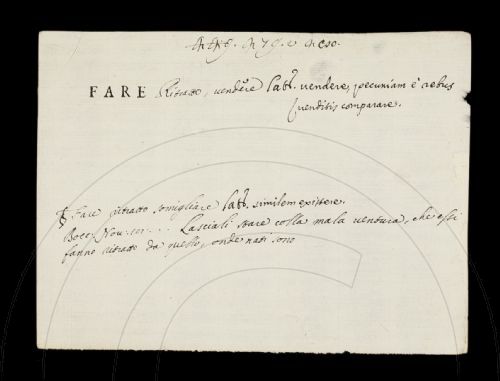 FARE Ritratto, vendere lat. vendere, pecuniam è rebus
venditis comparare.
§ Fare ritratto somigliare lat. similem existere.
Bocc. Nov. ... Lasciali stare colla mala ventura, che essi
fanno ritratto da quello, onde nati sono